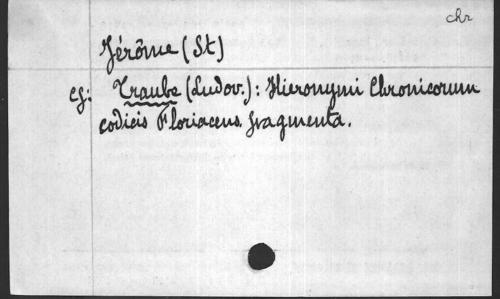 chr
Jérôme (St)
cf: Traube (Ludov.): Hieronymi Chronicorum
codicis Floriacens. fragmenta.